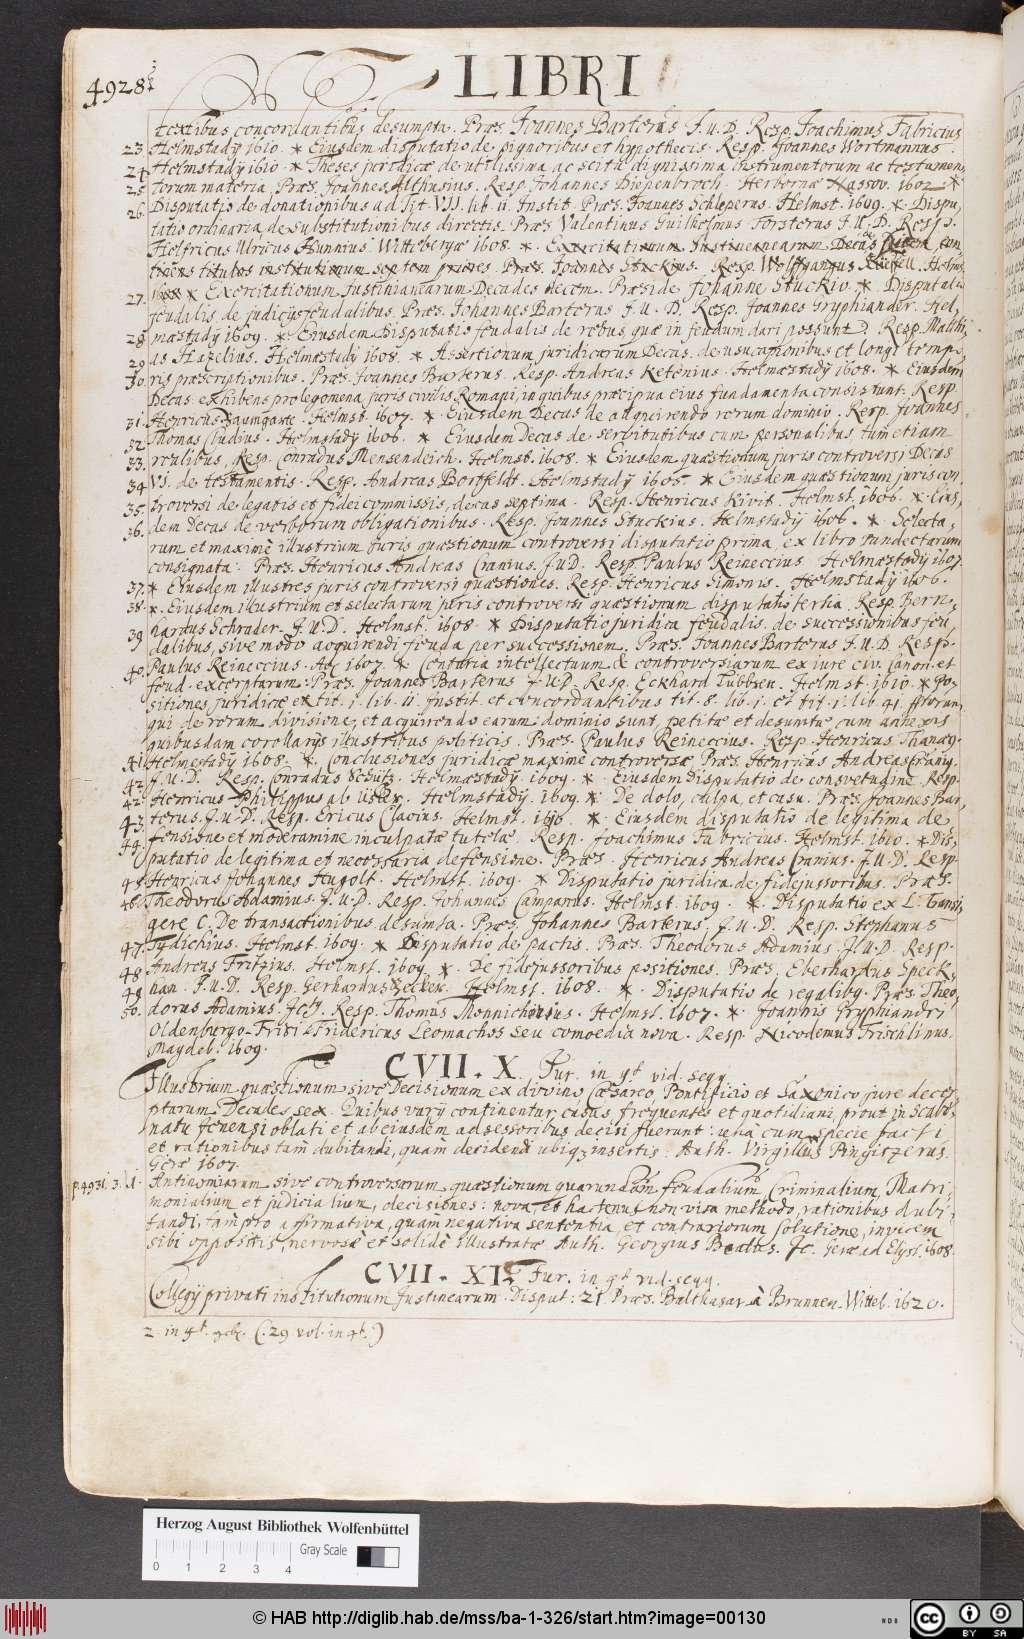 4928
LIBRI
textibus concordantibus desumpta. Præs. Joannes Barterus J.U.D. Resp. Joachimus Fabricius
23. Helmstadÿ 1610. * Eiusdem disputatio de pignoribus et hypothecis. Resp. Joannes Wortmannus.
24. Helmstadÿ 1610. * Theses juridicæ de utilissima ac scitu dignissima instrumentorum ac testamen,
25. torum materia. Præs. Joannes Althusius. Resp. Johannes Diepenbroch. Herbornæ Nassov. 1602. *
26. Disputatio de donationibus ad Tit. VII. lib. ii. Instit. Præs. Joannes Schleperus. Helmst. 1609. * Dispu,
tatio ordinaria de substitutionibus directis. Præs. Valentinus Guilhelmus Forsterus J.U.D. Resp.
Helfricus Ulricus Hunnius Wittebergæ 1608. * Exercitationum Justinianearum Decas con
tinens titulos institutionum septem priores. Præs. Joannes Stuckius. Resp. Wolffgangus Helmst.
27. * Exercitationum Justinianearum Decades decem. Præside Johanne Stuckio. * Disputatio
feudilis de judicijs feudalibus. Præs. Johannes Barterus J.U.D. Resp. Joannes Gryphiander. Hel,
28. mæstadÿ 1609. * Eiusdem Disputatio feudalis de rebus, quæ in feudum dari possunt. Resp. Matthi,
29. as Hazelius. Helmæstadÿ 1608. * Assertionum juridicarum Decas de usucapionibus et longi tempo,
30. ris præscriptionibus. Præs. Joannes Barterus. Resp. Andreas Ketenius. Helmæstadÿ 1608. * Eiusdem
Decas exhibens prolegomena juris civilis Romani, in quibus præcipua eius fundamenta consistunt. Resp.
31. Henricus Baumgarte. Helmst. 1607. * Eiusdem Decas de adquirendo rerum dominio. Resp. Joannes
32. Thomas Cludius. Helmstadÿ 1606. * Eiusdem Decas de servitutibus cum personalibus tum etiam
33. realibus, Resp. Conradus Mensendeich. Helmst. 1608. * Eiusdem quæstionum juris controversi Decas
34. VI. de testamentis. Resp. Andreas Bortfeldt. Helmstadÿ 1605. * Eiusdem quæstionum juris con,
35. troversi de legatis et fideicommissis, decas septima. Resp. Henricus Kivit. Helmst. 1606. * Eius,
36. dem Decas de verborum obligationibus. Resp. Joannes Stuckius. Helmstadÿ 1606. * Selecta,
rum et maximè illustrium Juris quæstionum controversi disputatio prima, ex libro Pandectarum
consignata: Præs. Henricus Andreas Cranius. JuD. Resp. Paulus Reineccius. Helmæstadÿ 1607.
37. * Eiusdem illustres juris controversi quæstiones. Resp. Henricus Simonis. Helmstadÿ 1606.
38. *. Eiusdem illustrium et selectarum juris controversi quæstionum disputatio tertia. Resp. Bern,
39 hardus Schrader. J.U.D. Helmst. 1608. * Disputatio juridica feudalis de successionibus feu,
dalibus, sive modo acquirendi feuda per successionem. Præs. Joannes Barterus J.U.D. Resp.
40. Paulus Reineccius. 1607. * Centuria intellectuum & controversiarum ex iure civ. canon. et
feud. excerptarum: Præs. Joannes Barterus J.U.D. Resp. Eckhard Lubben. Helmst. 1610. * Po,
sitiones juridicæ ex tit. i. lib. ii. Instit. et concordantibus tit. 8. lib. i. et tit. i. lib. 41. fftorum
qui de rerum divisione, et acquirendo earum dominio sunt, petitæ et desumtæ cum annexis
quibusdam corollarijs illustribus politicis. Præs. Paulus Reineccius. Resp. Henricus
41. Helmestadÿ 1608. * Conclusiones juridicæ maximè controversæ Præs. Henricus Andreas
42. J.U.D. Resp. Conradus Schutz. Helmæstadÿ 1609. * Eiusdem disputatio de consvetudine. Resp.
42. Henricus Philippus ab Usler. Helmstadÿ. 1609. * De dolo, culpa, et casu. Præs. Joannes Bar,
43. terus. J.U.D. Resp. Ericus Clavius. Helmst. 1610. * Eiusdem disputatio de legitima de
44. fensione et moderamine inculpatæ tutelæ. Resp. Joachimus Fabricius. Helmst. 1610. * Dis,
putatio de legitima et necessaria defensione. Præs. Henricus Andreas Cranius. J.U.D. Resp.
45. Henricus Johannes Hugolt. Helmst. 1609. * Disputatio juridica de fidejussoribus. Præs.
46. Theodorus Adamius. J.U.D. Resp. Johannes Campanus. Helmst. 1609. * Disputatio ex L. transi,
gere C. De transactionibus desumta. Præs. Johannes Barterus. J.U.D. Resp. Stephanus
47. Tydichius. Helmst. 1609. * Disputatio de pactis. Præs. Theodorus Adamius. J.U.D. Resp.
48 Andreas Fritzius. Helmst. 1609. * De fidejussoribus positiones. Præs. Eberhardus Speck,
49 han. J.U.D. Resp. Gerhardus Becker. Helmst. 1608. * Disputatio de regalibq. Præs. Theo,
50. dorus Adamius. Resp. Thomas Monnichusius. Helmst. 1607. * Joannis Gryphiandri
Oldenburgo-Frisi Fridericus Leomachos seu comoedia nova. Resp. Nicodemus Frischlinus.
Magdeb. 1609.
CVII. X. Jur. in 4t. vid. seqq.
Illustrium quæstionum sive Decisionum ex divino Cæsareo, Pontificio et Saxonico jure decer,
ptarum Decades sex. Quibus varÿ continentur casus frequentes et quotidiani, prout in Scabi,
natu Jenensi oblati et ab eiusdem adsessoribus decisi fuerunt: unà cum specie facti
et rationibus tam dubitandi, quàm decidendi ubiq; insertis. Auth. Virgilius Pingiszerus.
Geræ 1607.
p. 4931. 3. 1. Antinomiarum sive controversarum quæstionum quarundam feudalium, Criminalium, Matri,
monialium et judicialium, decisiones: nova et hactenus non visa methodo, rationibus dubi,
tandi, tam pro affirmativa, quàm negativa sententia, et contrariorum solutione, invicem
sibi oppositis, nervosè et solidè illustratæ Auth. Georgius Beatus. Jc. Geræ ad Elyst. 1608.
CVII. XI. Jur. in 4t. vid. seqq.
Collegÿ privati institutionum Justinearum. Disput: 21. Præs. Balthasar à Brunnen. Witteb. 1620.
2. in 4t. geb. (: 29 vol. in 4t. )
Herzog August Bibliothek Wolfenbüttel
0 1 2 3 4
Gray Scale
© HAB http://diglib.hab.de/mss/ba-1-326/start.htm?image=00130
WDB
cc BY SA